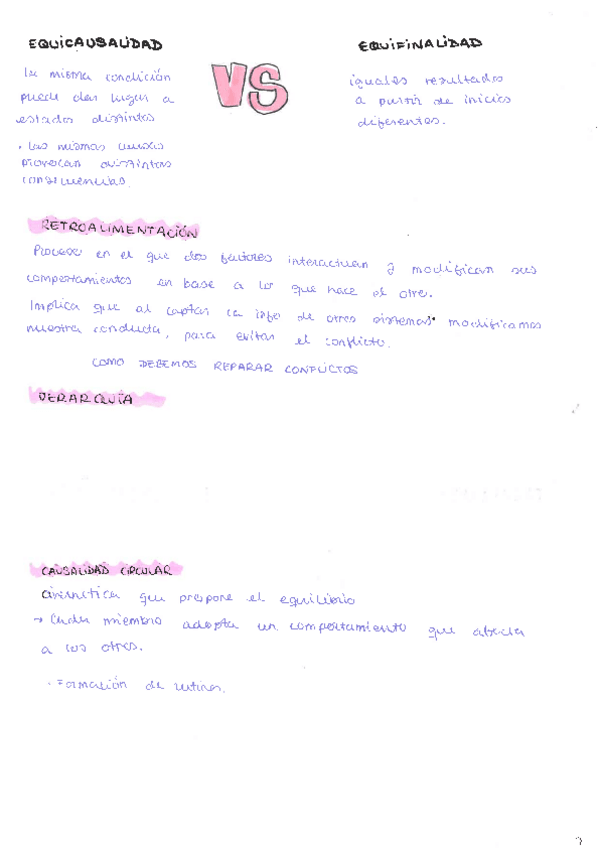 EQUICAUSALIDAD
VS
EQUIFINALIDAD
La misma condición
puede dar lugar a
estados distintos
• Las mismas causas
provocan distintas
consecuencias.
iguales resultados
a partir de inicios
diferentes.
RETROALIMENTACIÓN
Proceso en el que dos factores interactuan y modifican sus
comportamientos en base a lo que hace el otro.
Implica que al captar la info de otros sistemas modificamos
nuestra conducta, para evitar el conflicto.
COMO DEBEMOS REPARAR CONFLICTOS
JERARQUÍA
CAUSALIDAD CIRCULAR
que propone el equilibrio
→ Cada miembro adopta un comportamiento que afecta
a los otros.
· Formación de rutinas.